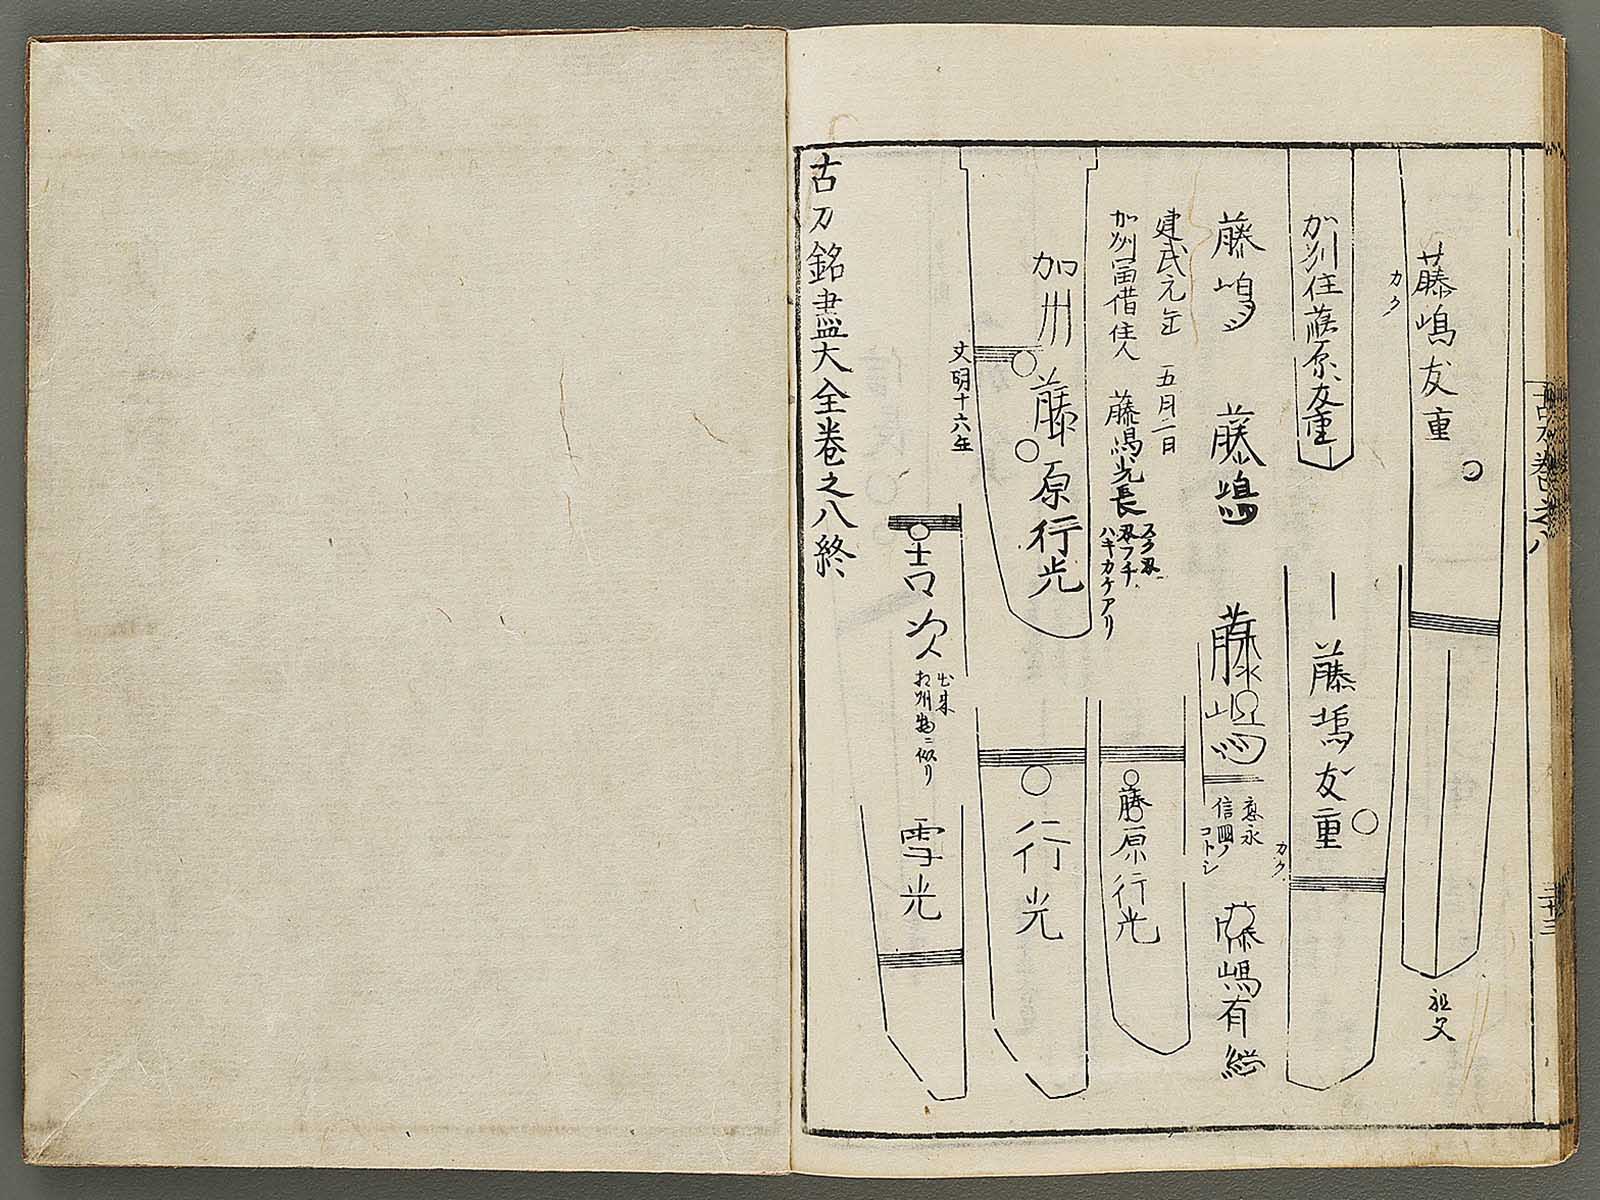 藤嶋友重
カク
祖父
加州住藤原友重
一藤嶋友重
カク
藤嶋
藤嶋
藤嶋
応永
信國ノ
コトシ
藤嶋有継
建武元年 五月二日
加州冨樫住人 藤嶋光長
スク刄
刄フチ
ハキカケアリ
藤原行光
加州藤原行光
文明十六年
行光
吉次
出来
相州物ニ似リ
雪光
古刀銘盡大全卷之八終